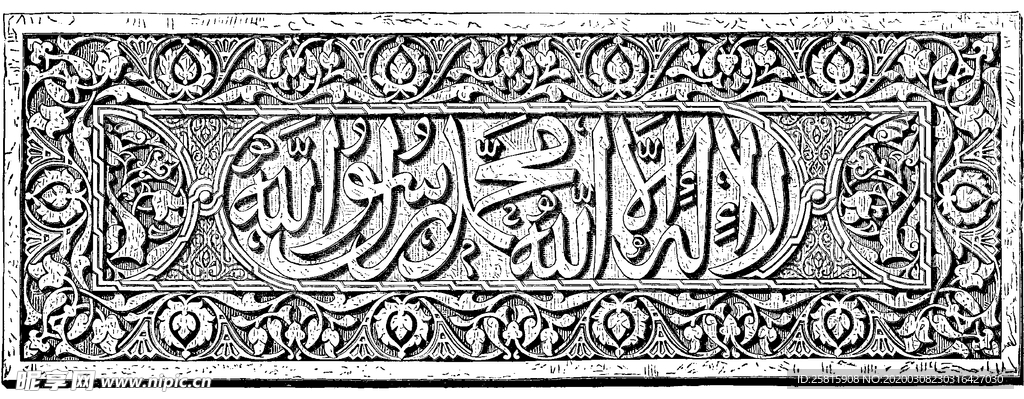 لا إله إلا الله محمد رسول الله
昵享网 www.nipic.cn
ID:25815908 NO:20200308230316427030